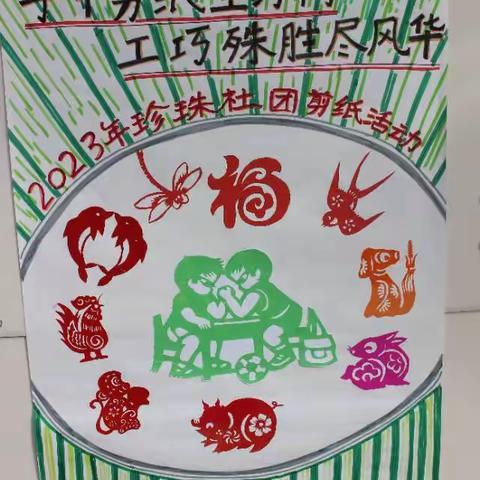 工巧殊胜尽风华
2023年珍珠社团剪纸活动
福